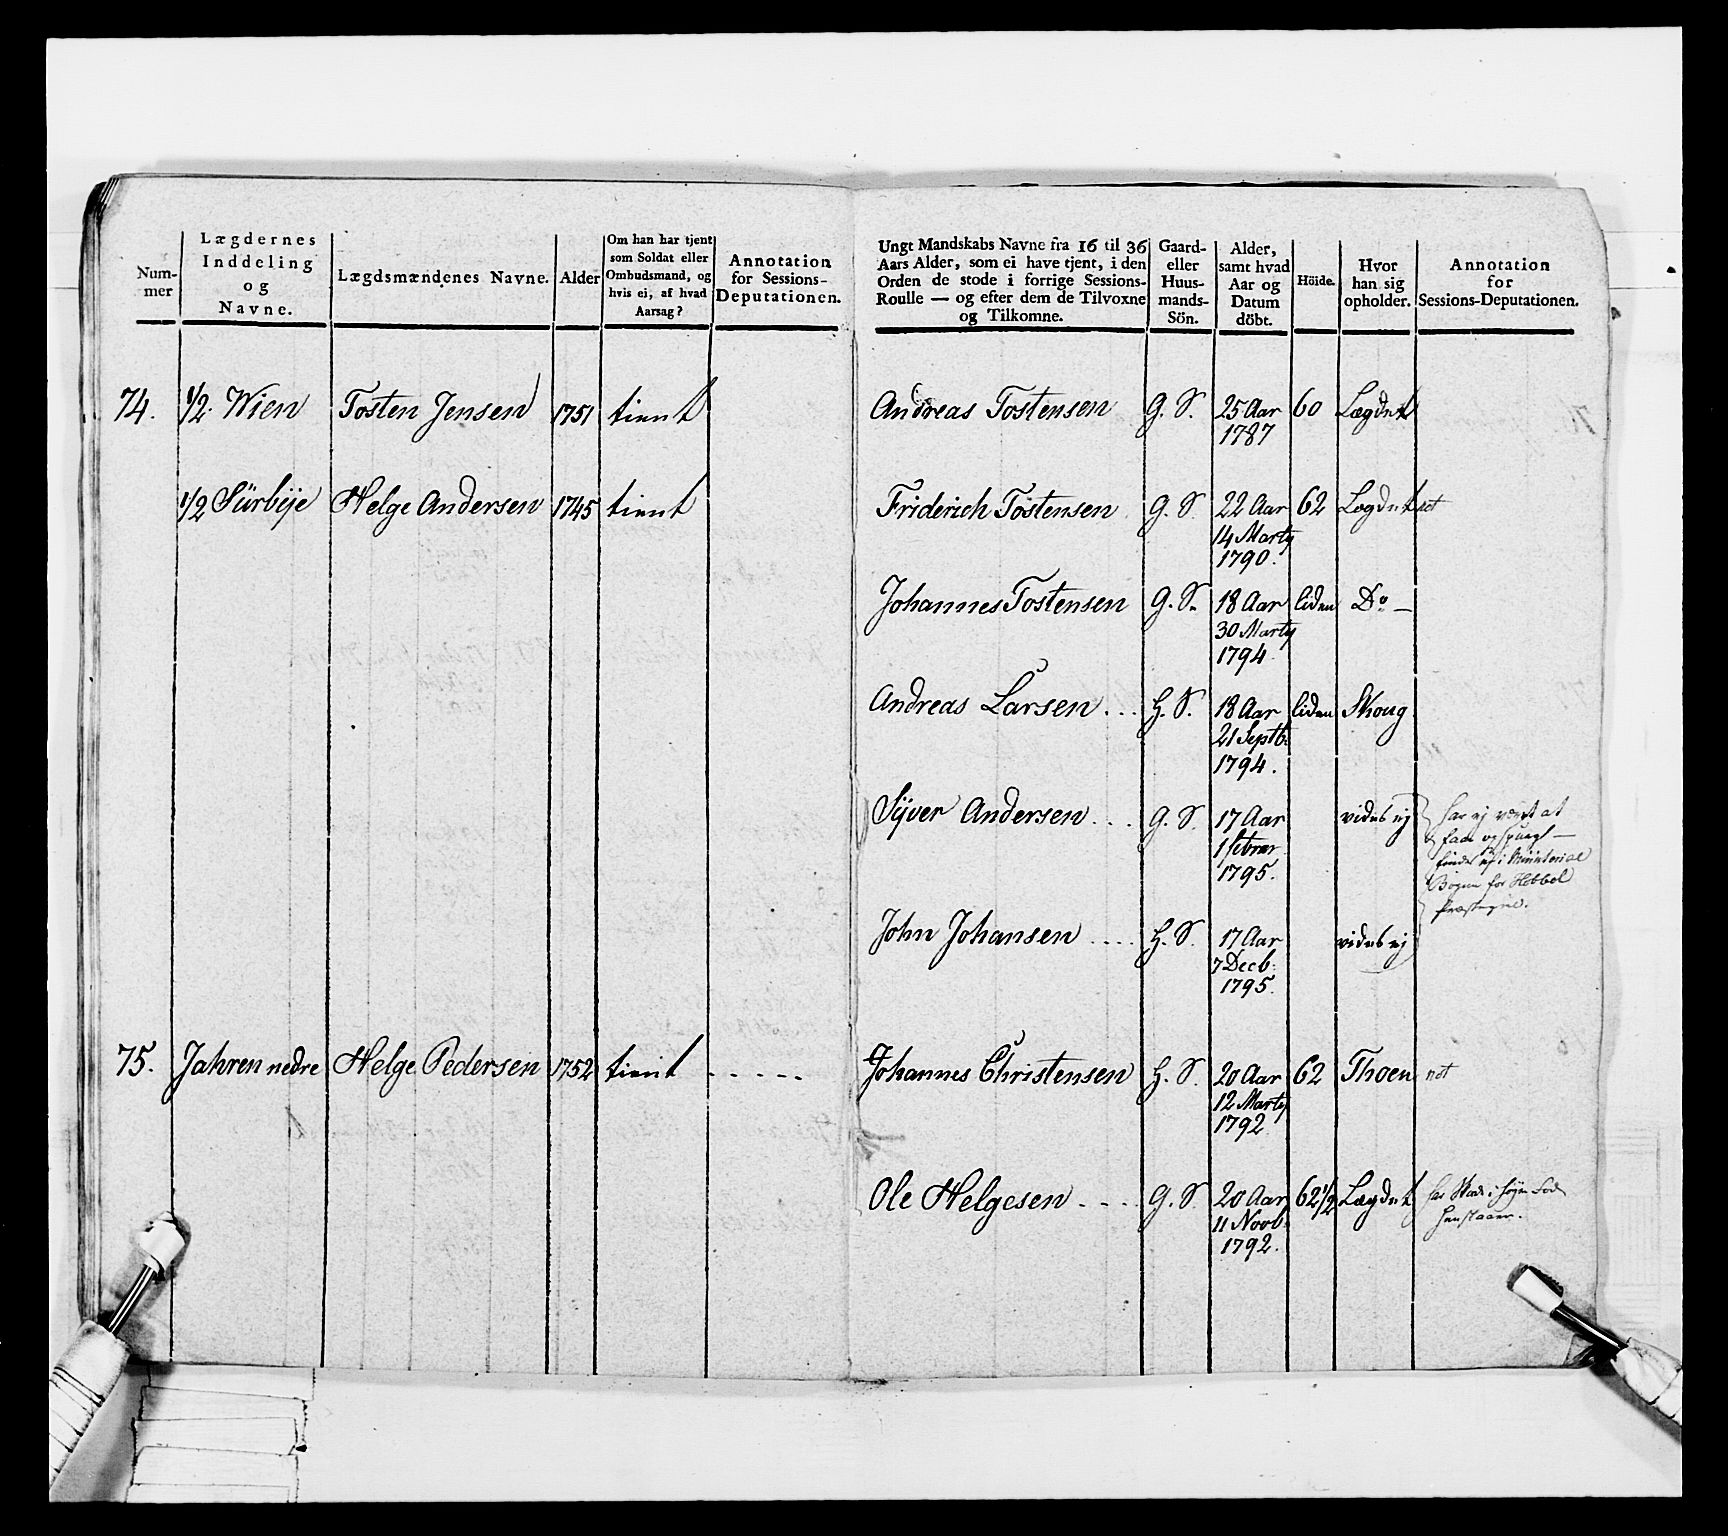 Num-
mer
Lægdernes
Inddeling
og
Navne.
Lægdsmændenes Navne.
Alder
Om han har tjent
som Soldat eller
Ombudsmand, og
hvis ei, af hvad
Aarsag?
Annotation
for Sessions-
Deputationen.
Ungt Mandskabs Navne fra 16 til 36
Aars Alder, som ei have tjent, i den
Orden de stode i forrige Sessions-
Roulle — og efter dem de Tilvoxne
og Tilkomne.
Gaard-
eller
Huus-
mands-
Sön.
Alder,
samt hvad
Aar og
Datum
döbt.
Höide.
Hvor
han sig
opholder.
Annotation
for
Sessions-Deputationen.
74. 1/2 Wien Tosten Jensen 1751 tient Andreas Tostensen G. S. 25 Aar 60 Lægdet
1787
1/2 Sürbije Helge Andersen 1745 tient Friderich Tostensen G. S. 22 Aar 62 Lægdet
14 Marty
1790.
Johannes Tostensen G. S. 18 Aar liden Do —
30 Marty
1794
Andreas Larsen . . . H. S. 18 Aar liden Skoug
21 Septb:
1794.
Syver Andersen . . . G. S. 17 Aar vides ej har ej været at
1 Febru faae opspurgt —
1795. findes ej i Ministerial
Bogen for Hobbøl
Præstegield.
John Johansen . . . . H. S. 17 Aar vides ej
7 Decb:
1795.
75. Jahren nedre Helge Pedersen 1752 tient - - - - - Johannes Christensen H. S. 20 Aar 62 Thoen
12 Marty
1792
Ole Helgesen - - - - G. S. 20 Aar 62 1/2 Lægdet har Skade i høyre Fod
11 Novb: henstaaer.
1792.